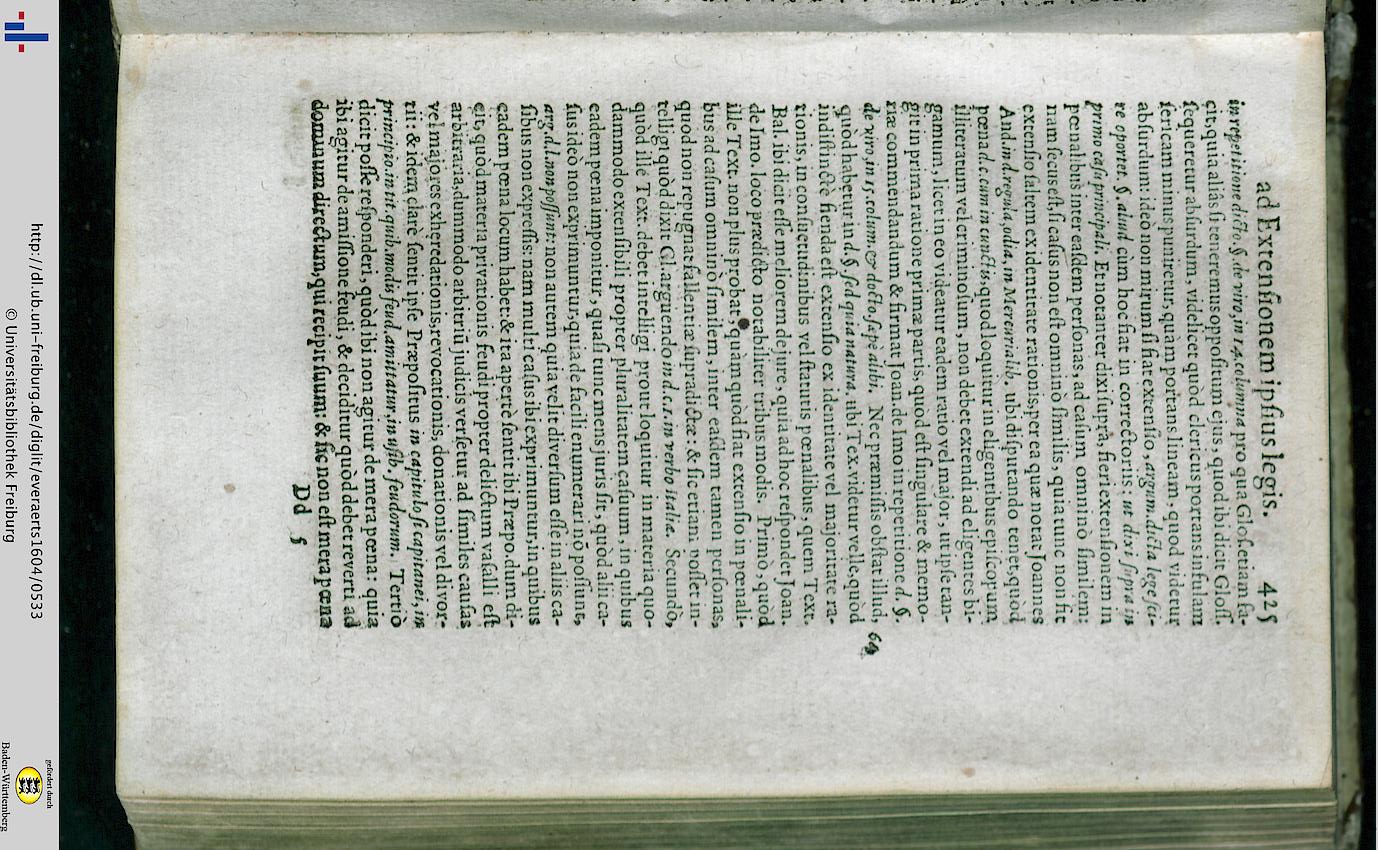 ad Extensionem ipsius legis. 425
in repetitione dicto §. de viro, in 14. columna pro qua Glos. etiam fa-
cit, quia aliàs si teneremus oppositum ejus, quod ibi dicit Gloss.
sequeretur absurdum, videlicet quod clericus portans insulam
sericam minus puniretur, quàm portans lineam, quod videtur
absurdum: ideò non mirum si fiat extensio, argum. dicta lege sci-
re oportet. §. aliud cum hoc fiat in correctoriis: ut dixi supra in
primo casu principali. Et notanter dixi suprà, fieri extensionem in
pœnalibus inter easdem personas, ad casum omninò similem:
nam secus est, si casus non est omninò similis, quia tunc non fit
extensio saltem ex identitate rationis, per ea quæ notat Joannes
And. in d. regula, odia, in Mercurialib. ubi disputando tenet, quod
pœna d. c. cum in cunctis, quod loquitur in eligentibus episcopum
illiteratum vel criminosum, non debet extendi ad eligentes bi-
gamum, licet in eo videatur eadem ratio vel major, ut ipse tan-
git in prima ratione primæ partis, quod est singulare & memo-
riæ commendandum & firmat Joan. de Imo in repetitione d. §.
de viro, in 15. colum. & docto. sæpe alibi. Nec præmissis obstat illud, 64
quod habetur in d. §. sed quia natura. ubi Tex. videtur velle, quòd
indistinctè fienda est extensio ex identitate vel majoritate ra-
tionis, in consuetudinibus vel statutis pœnalibus, quem Text.
Bal. ibi dicit esse meliorem de jure, quia ad hoc respondet Joan.
de Imo. loco prædicto notabiliter tribus modis. Primò, quòd
ille Text. non plus probat, quàm quòd fiat extensio in pœnali-
bus ad casum omninò similem, inter easdem tamen personas,
quod non repugnat fallentiæ supradictæ: & sic etiam posset in-
telligi quod dixit Gl. arguendo in d. c. 1. in verbo italiæ. Secundò,
quòd ille Text. debet intelligi prout loquitur in materia quo-
dammodo extensibili propter pluralitatem casuum, in quibus
eadem pœna imponitur, quasi tunc mens juris sit, quòd alii ca-
sus ideò non exprimuntur, quia de facili enumerari nō possunt,
arg. d. l. non possunt: non autem quia velit diversum esse in aliis ca-
sibus non expressis: nam multi casus ibi exprimuntur, in quibus
eadem pœna locum habet: & ita apertè sentit ibi Præpo. dum di-
cit, quod materia privationis feudi propter delictum vasalli est
arbitraria, dummodo arbitriū judicis versetur ad similes causas
vel majores exhęredationis, revocationis, donationis vel divor-
tii: & idem clarè sentit ipse Præpositus in capitulo si capitanei, in
principio, in tit. quib. modis feud. amittatur, in usib. feudorum. Tertiò
dicit posse responderi, quòd ibi non agitur de mera pœna: quia
ibi agitur de amissione feudi, & deciditur quòd debet reverti ad
dominum directum, qui recipit suum: & sic non est mera pœna
Dd 5
http://dl.ub.uni-freiburg.de/diglit/everaerts1604/0533
© Universitätsbibliothek Freiburg
gefördert durch
Baden-Württemberg